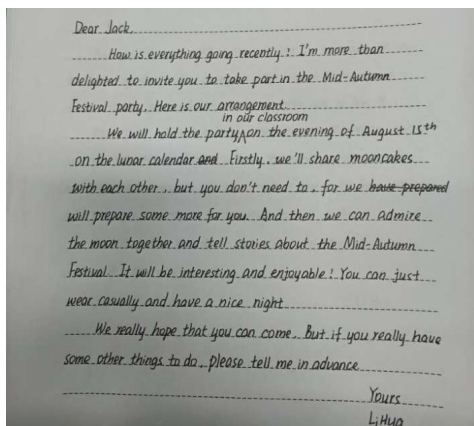 Dear Jack,
How is everything going recently! I'm more than
delighted to invite you to take part in the Mid-Autumn
Festival party. Here is our arrangement.
in our classroom
We will hold the party on the evening of August 15th
on the lunar calendar and Firstly, we'll share mooncakes
with each other, but you don't need to, for we have prepared
will prepare some more for you. And then we can admire
the moon together and tell stories about the Mid-Autumn
Festival. It will be interesting and enjoyable! You can just
wear casually and have a nice night
We really hope that you can come. But if you really have
some other things to do, please tell me in advance
Yours
LiHua